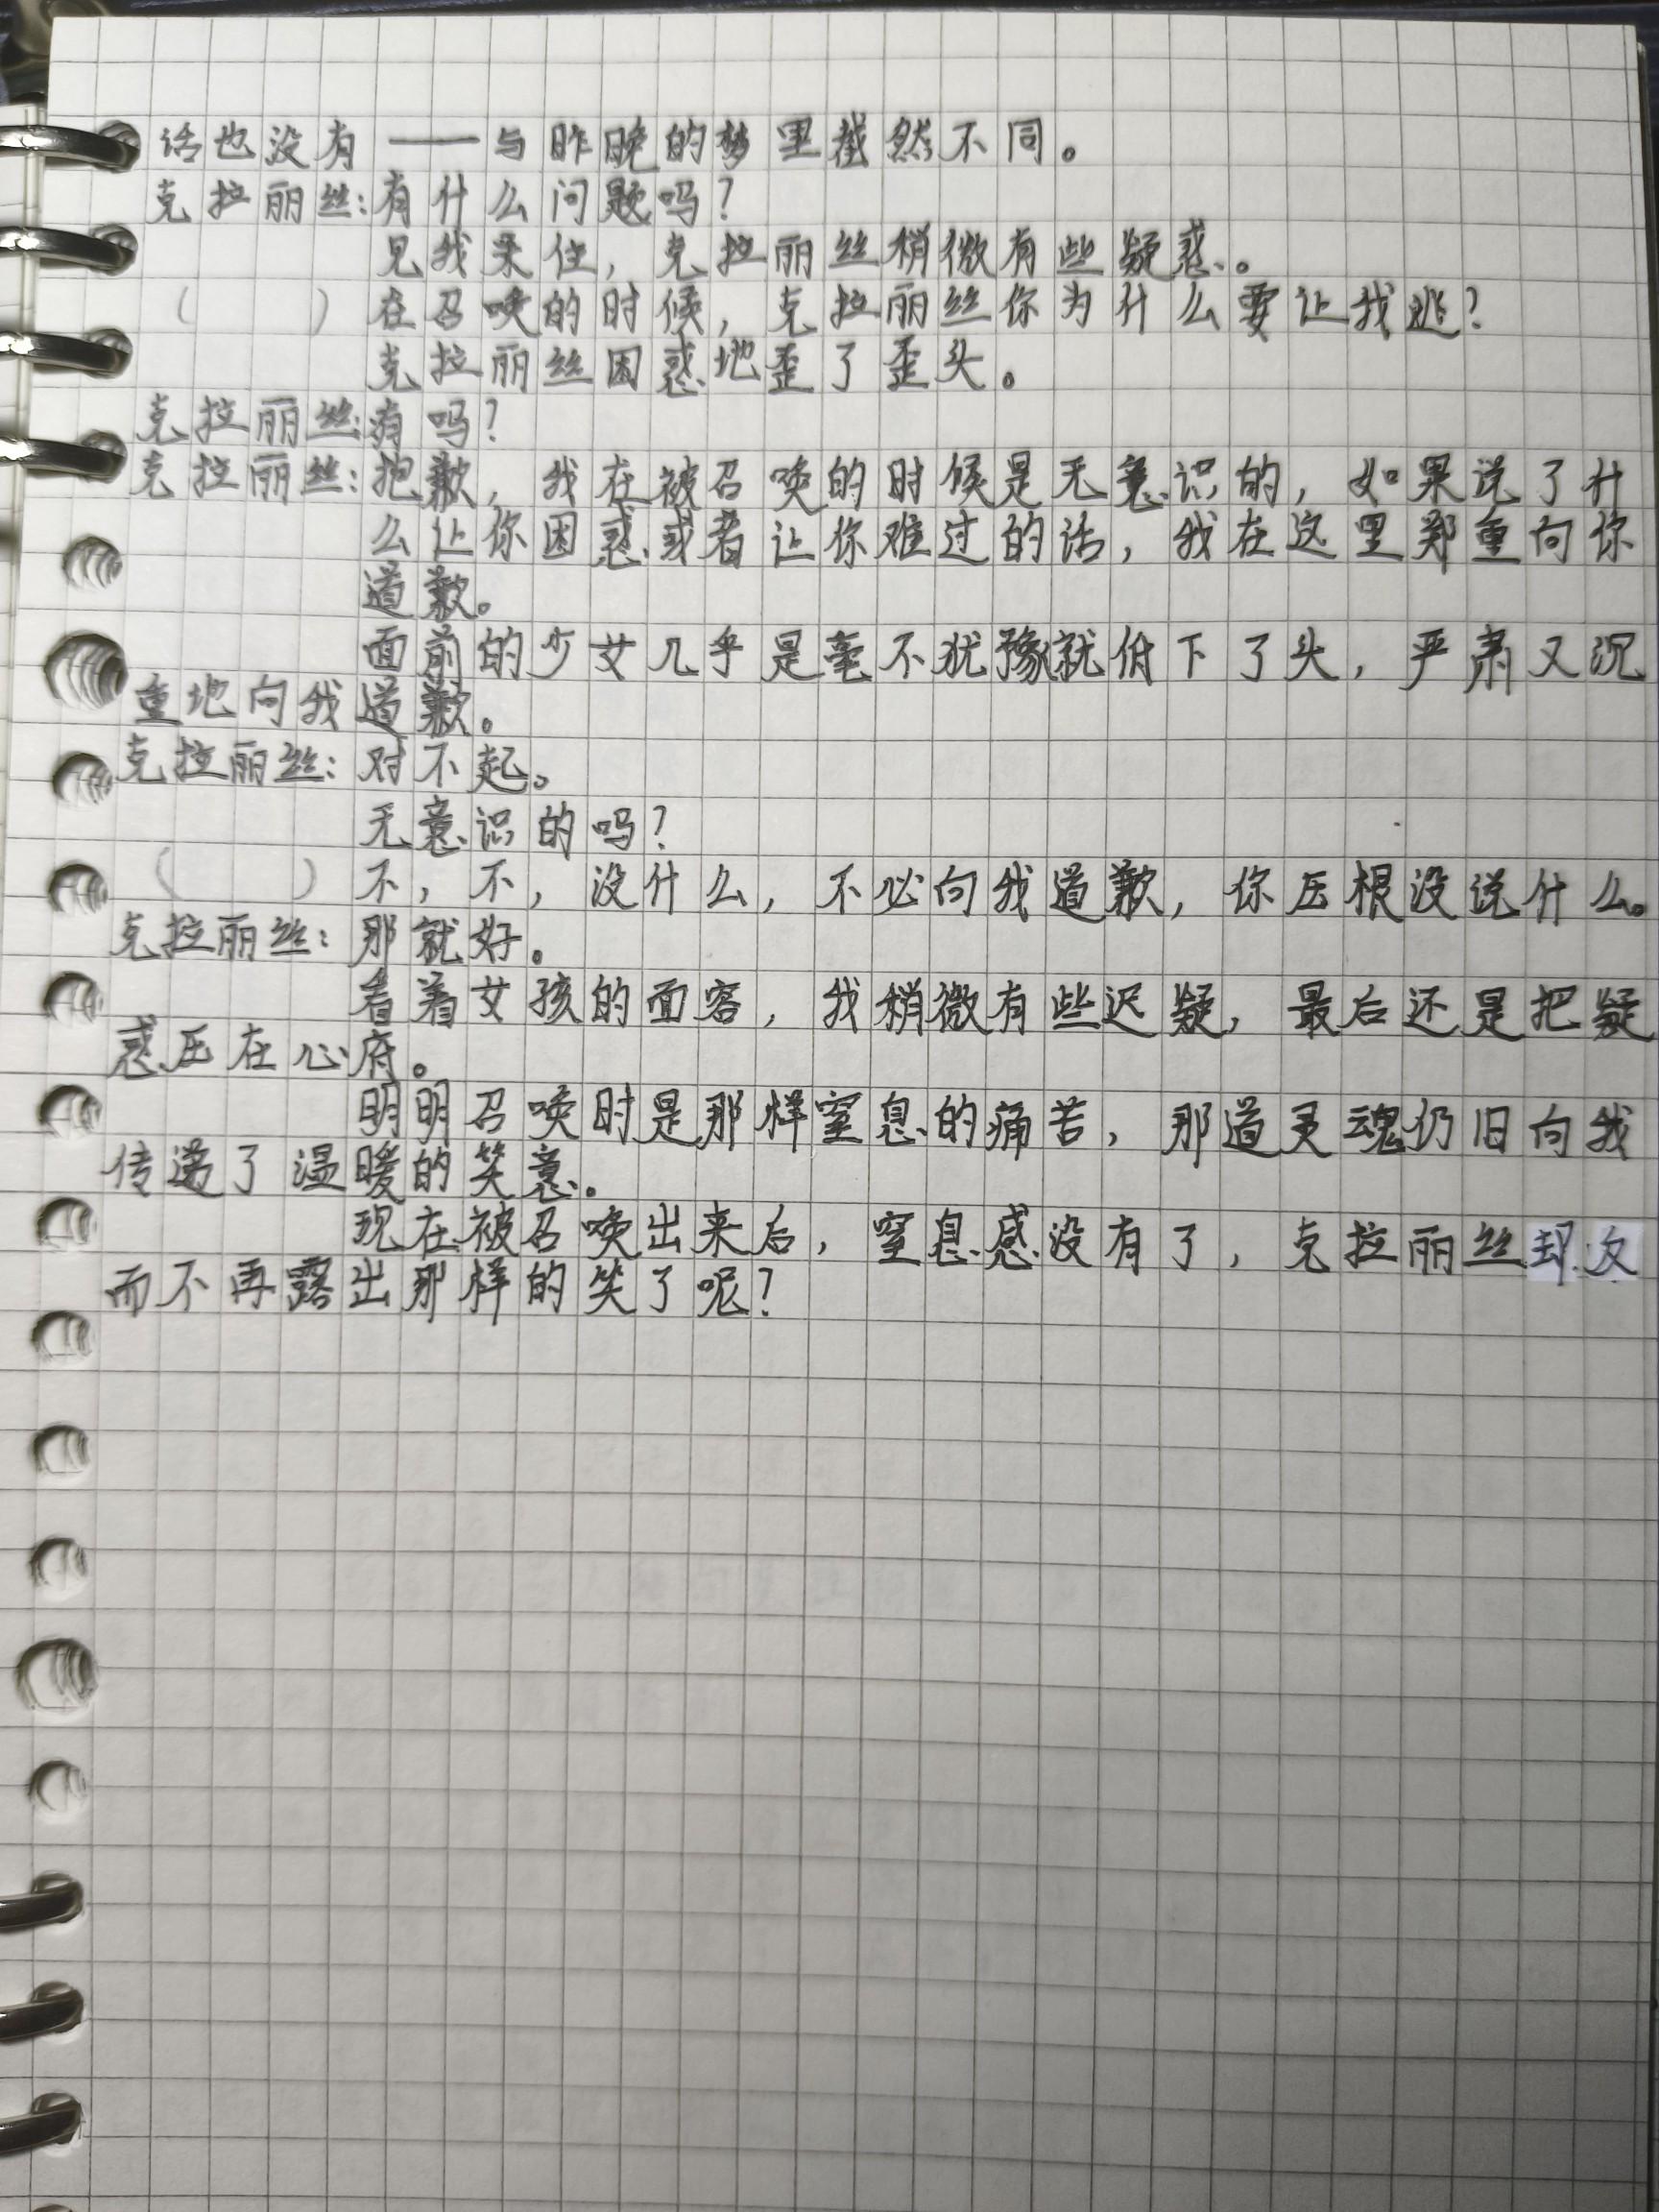 话也没有——与昨晚的梦里截然不同。
克拉丽丝:有什么问题吗?
见我呆住,克拉丽丝稍微有些疑惑。
( )在召唤的时候,克拉丽丝你为什么要让我逃?
克拉丽丝困惑地歪了歪头。
克拉丽丝:有吗?
克拉丽丝:抱歉,我在被召唤的时候是无意识的,如果说了什
么让你困惑或者让你难过的话,我在这里郑重向你
道歉。
面前的少女几乎是毫不犹豫就低下了头,严肃又沉
重地向我道歉。
克拉丽丝:对不起。
无意识的吗?
( )不,不,没什么,不必向我道歉,你压根没说什么。
克拉丽丝:那就好。
看着女孩的面容,我稍微有些迟疑,最后还是把疑
惑压在心府。
明明召唤时是那样窒息的痛苦,那道灵魂仍旧向我
传递了温暖的笑意。
现在被召唤出来后,窒息感没有了,克拉丽丝却
而不再露出那样的笑了呢?